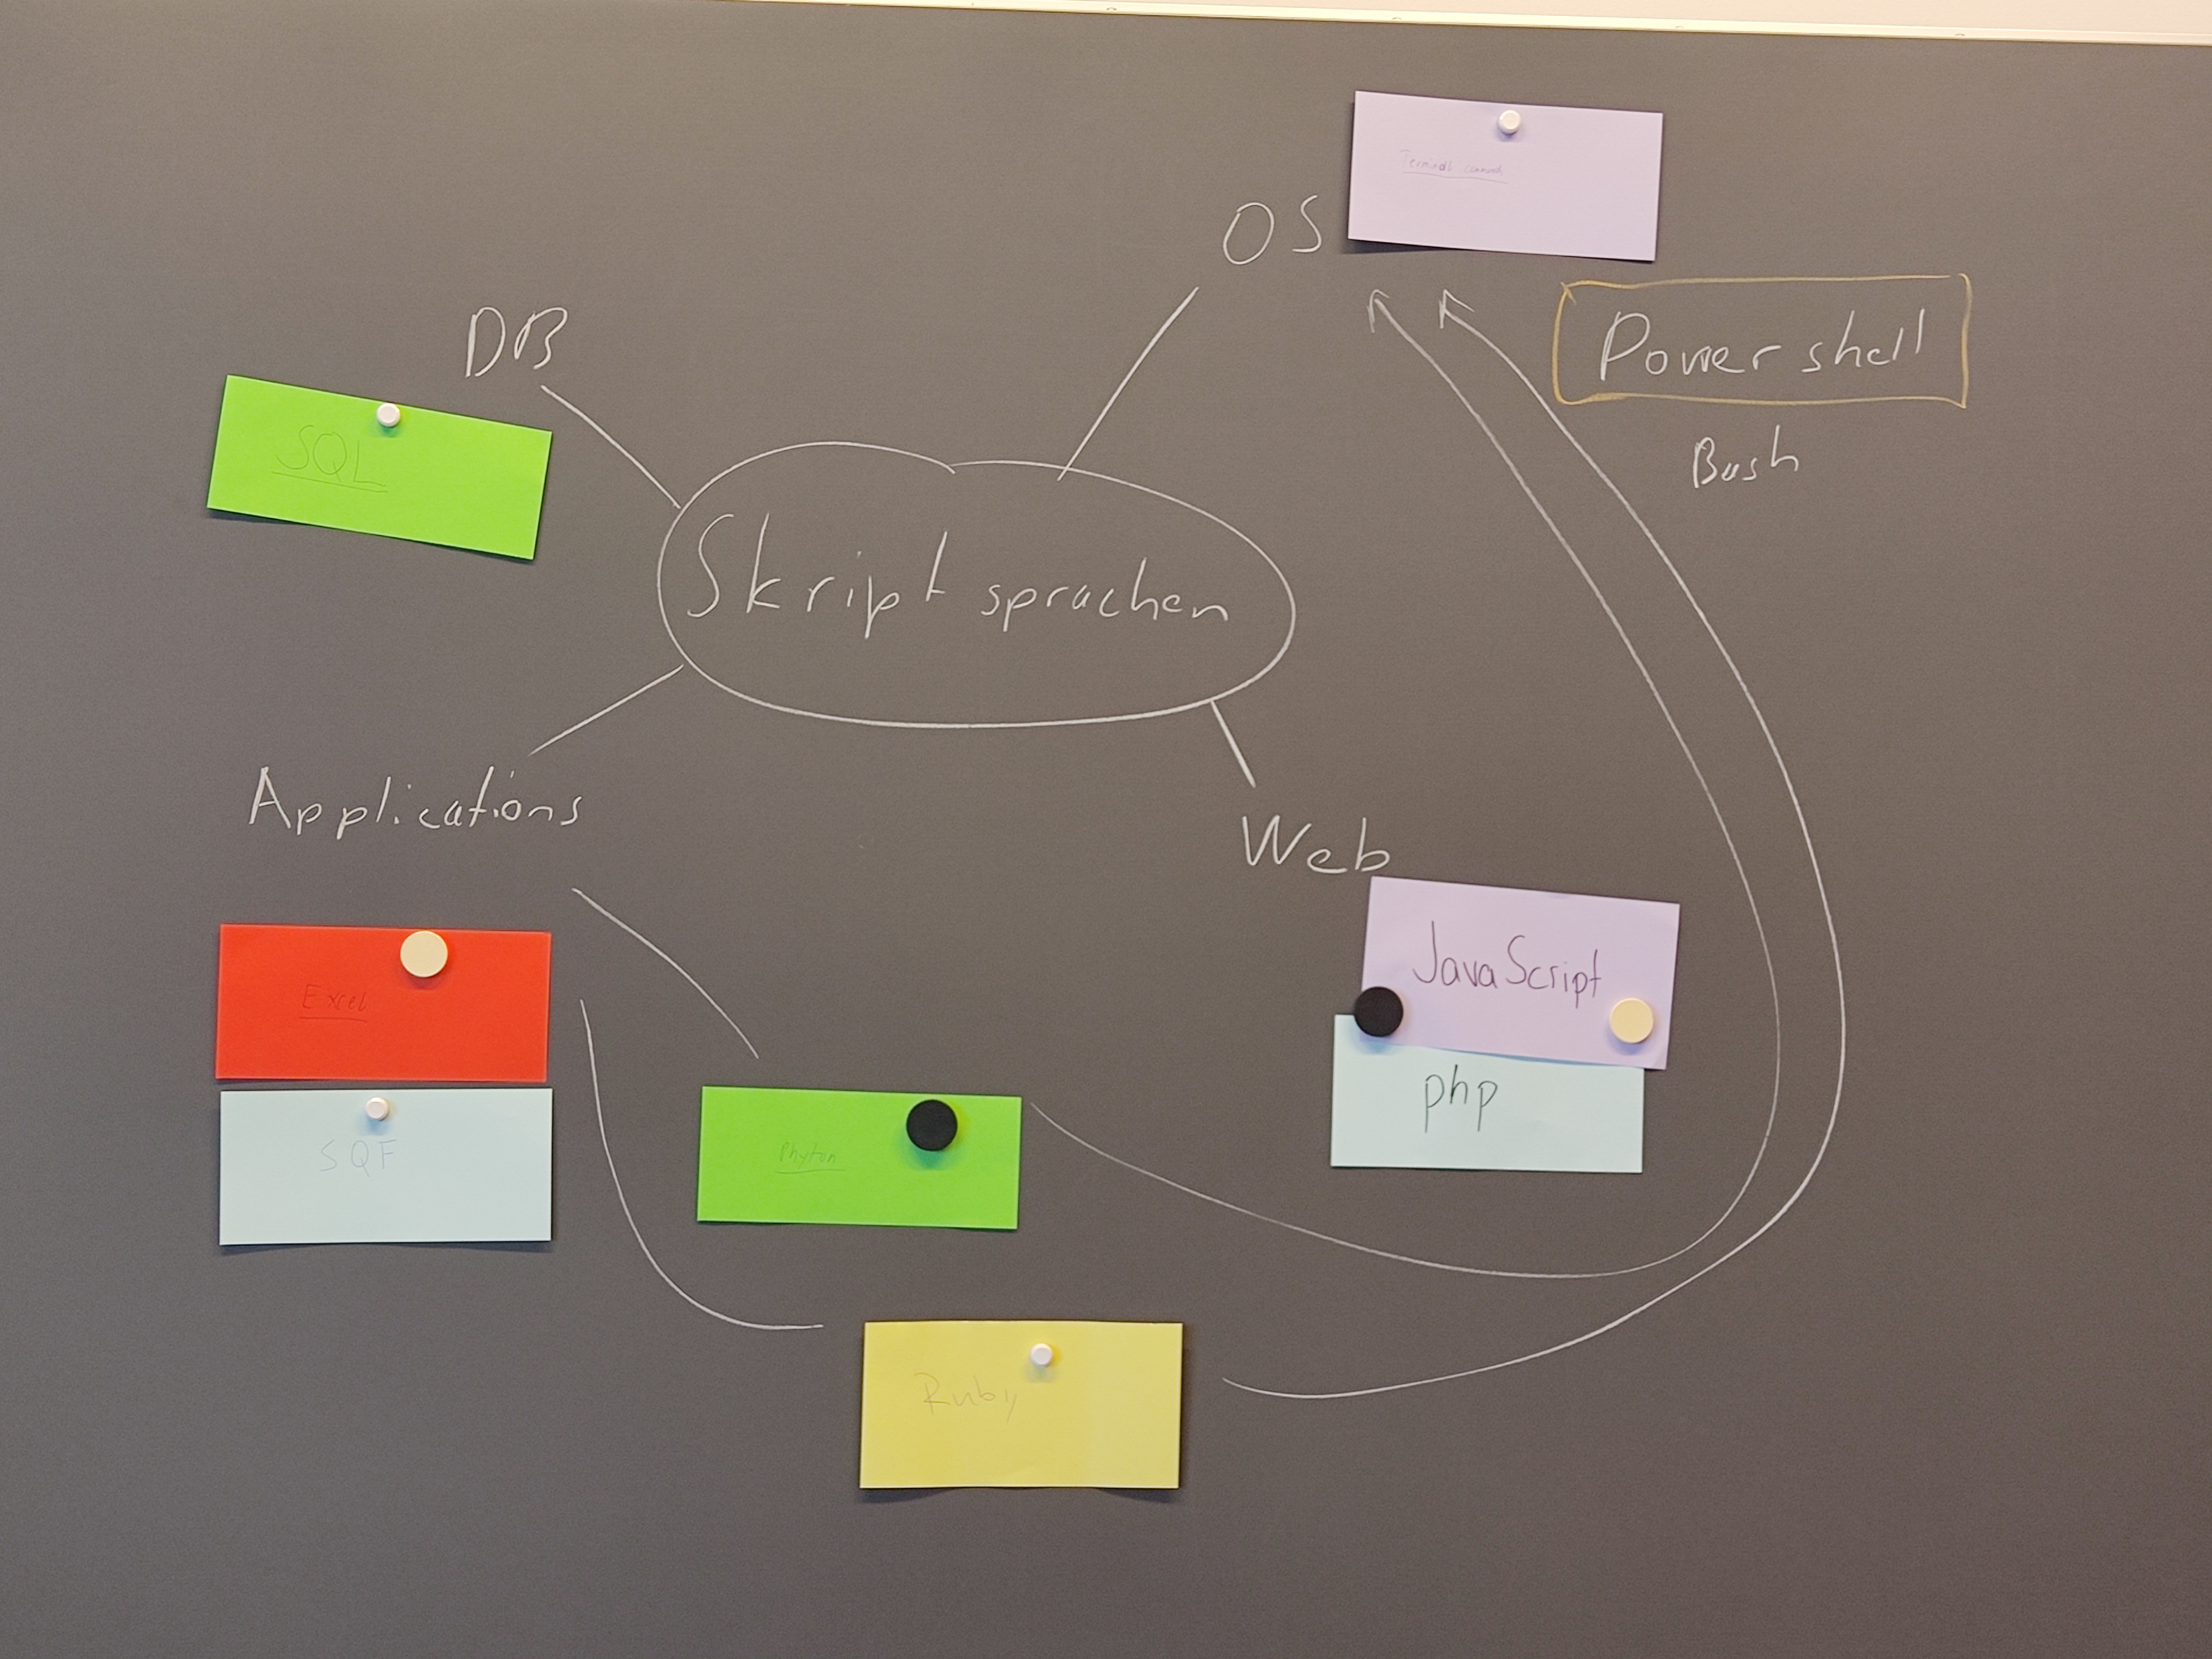 Terminal commands
OS
DB
Powershell
SQL
Bash
Skriptsprachen
Applications
Web
JavaScript
Excel
php
SQF
Phyton
Ruby